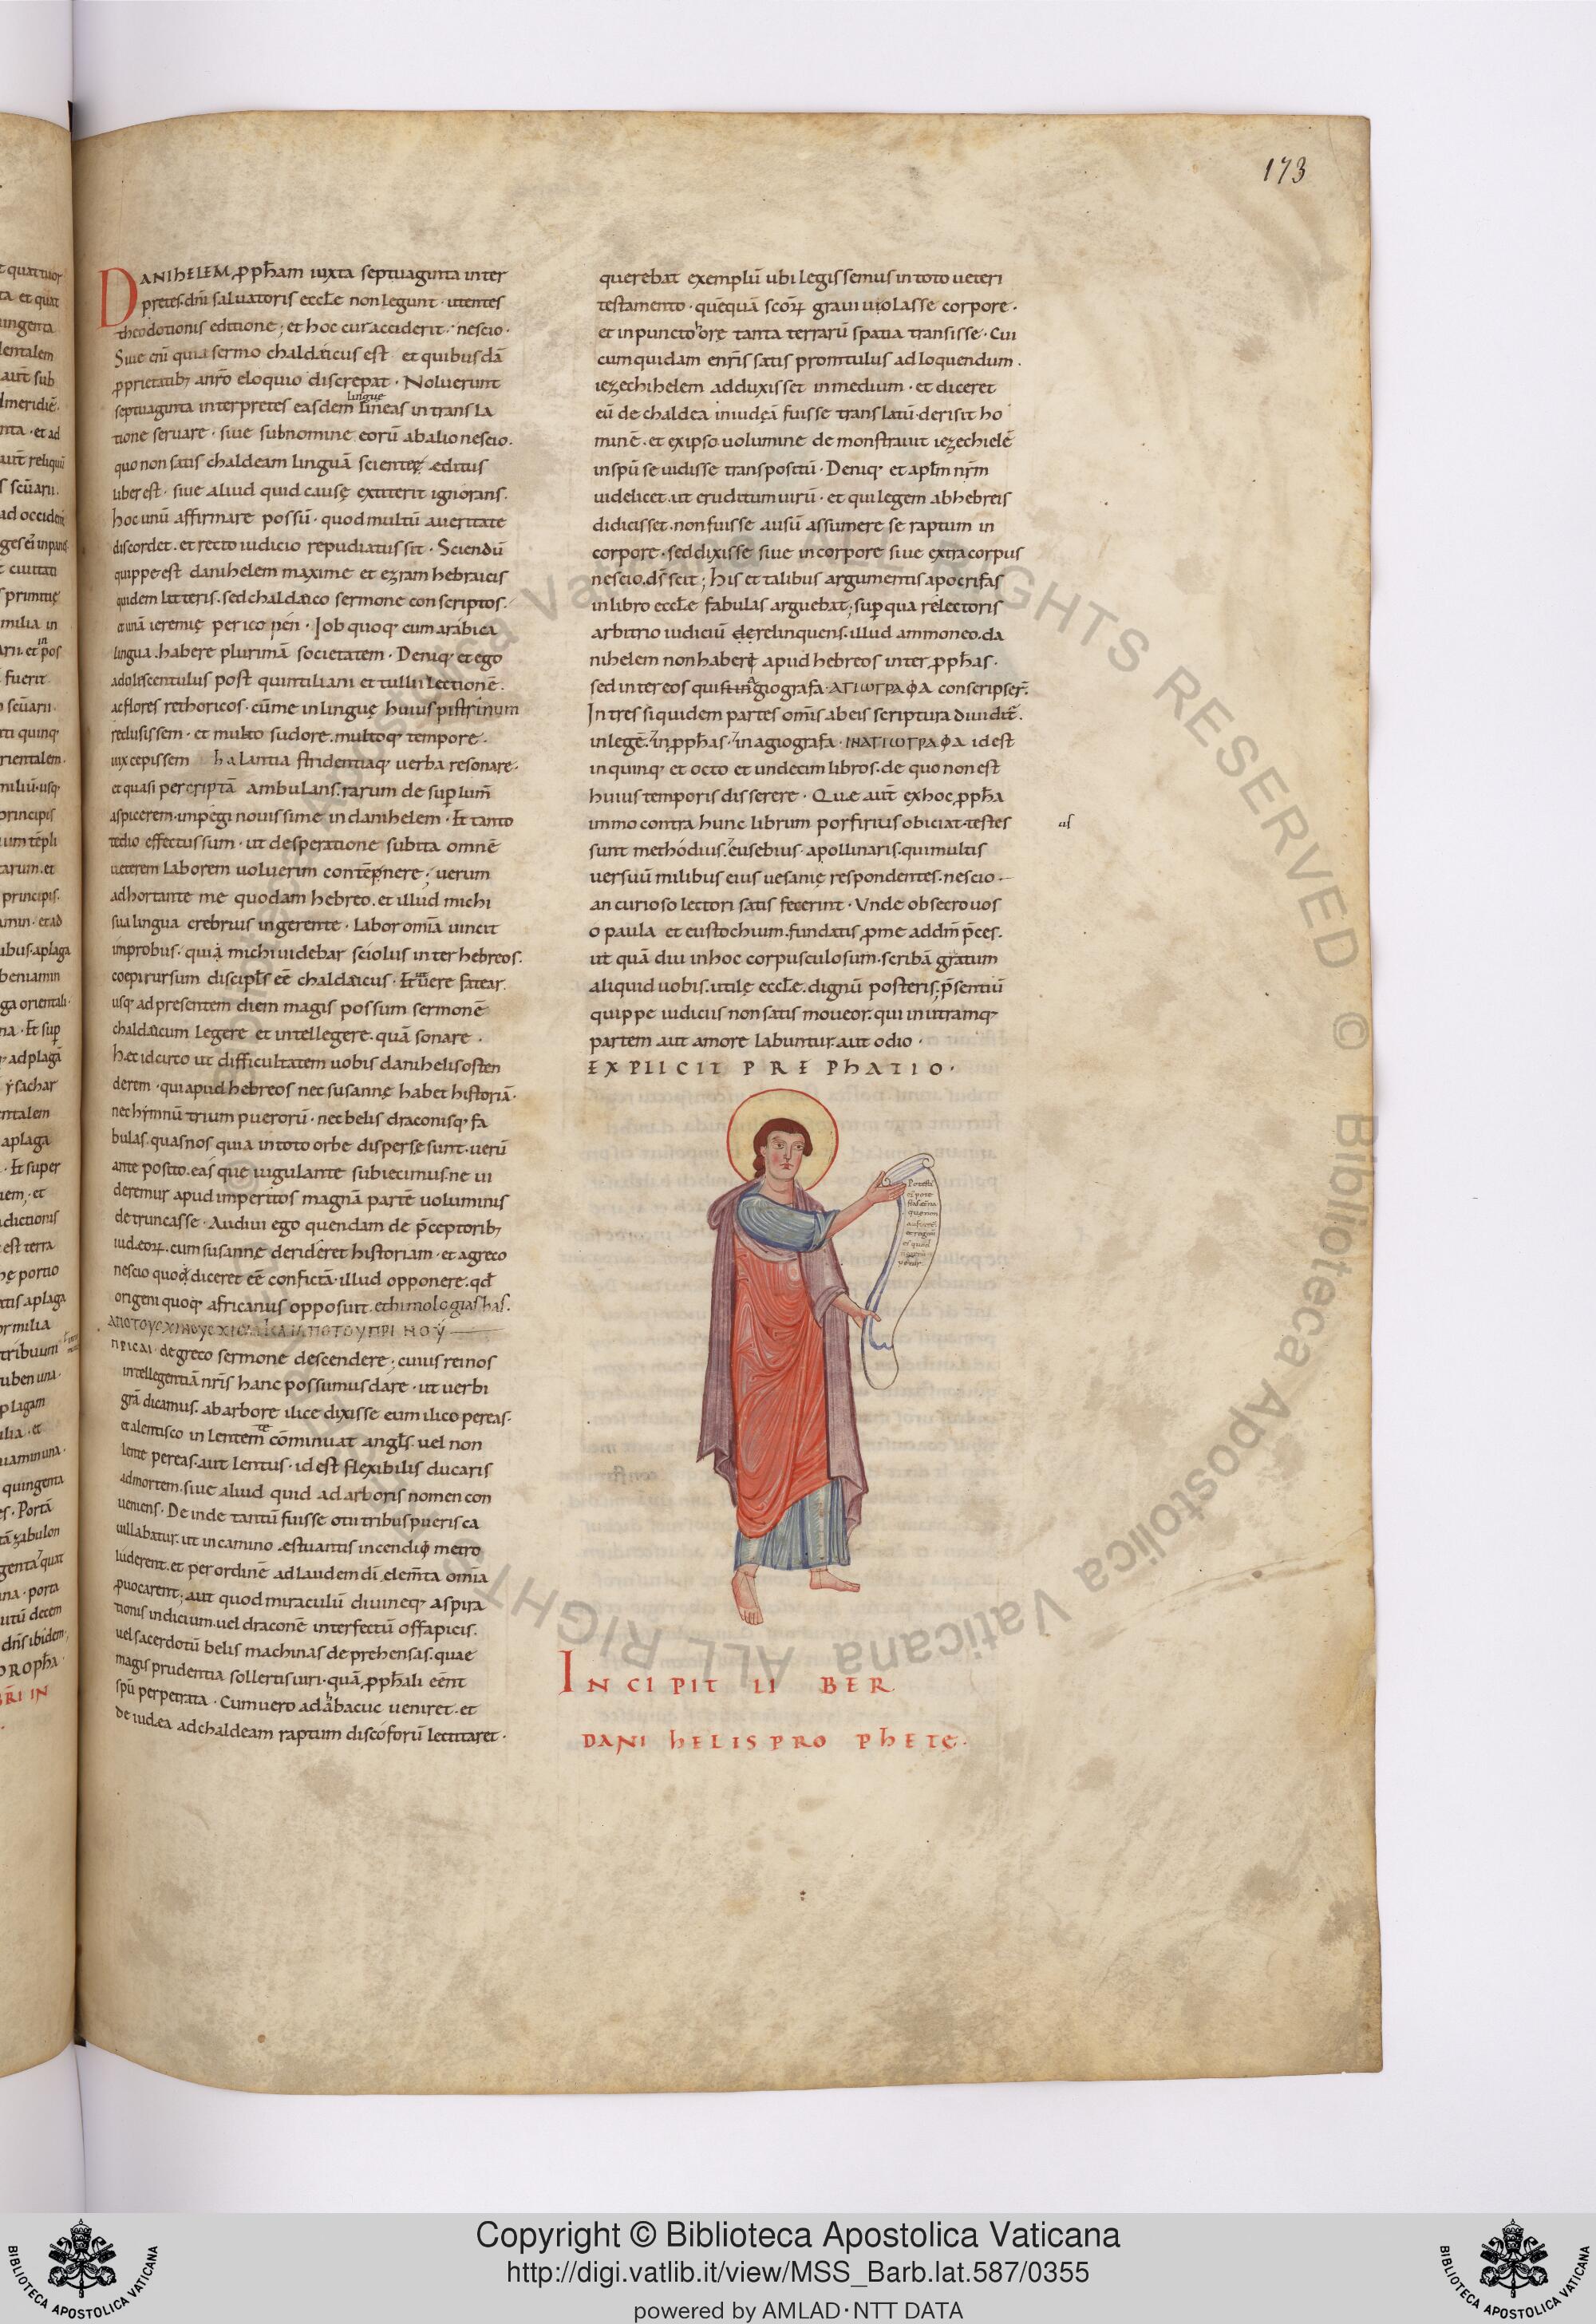 173
DANIhELEM ꝓpħam iuxta septuaginta inter
pretes. dn̄i saluatoris eccłe non legunt · utentes
theodotionis editione; et hoc cur acciderit · nescio ·
Siue eni quia sermo chaldaicus est et quibusdā
ꝓprietatibꝫ anrō eloquio discrepat · Noluerunt
lingue
septuaginta interpretes easdem lineas in transla
tione seruare · siue sub nomine eorū ab alio nescio.
quo non satis chaldeam linguā scientę editus
liber est · siue aliud quid causę extiterit ignorans.
hoc unū affirmare possū · quod multū aueritate
discordet . et recto iudicio repudiatus sit · Sciendū
quippe est danihelem maxime et ezram hebraicis
quidem litteris . sed chaldaico sermone conscriptos.
et unā ieremię pericopen · Iob quoq· cum arabica
lingua . habere plurimā societatem · Deniq· et ego
adoliscentulus post quintiliani et tullii lectionē .
ac flores rethoricos · cūme in linguę huius pistrinum
reclusissem · et multo sudore . multoq· tempore ·
uix cepissem halantia stridentiaq· uerba resonare ·
et quasi per criptā ambulans . rarum desuꝑ lum̄
aspicerem · impegi nouissime in danihelem · Et tanto
tedio effectus sum · ut desperatione subita omnē
ueterem laborem uoluerim contēpnere; uerum
adhortante me quodam hebreo . et illud michi
sua lingua crebrius ingerente · labor om̄ia uincit
improbus · quia michi uidebar sciolus inter hebreos .
coepi rursum discipłs eē chaldaicus · Et uere fatear .
usq· ad presentem diem magis possum sermonē
chaldaicum legere et intellegere . quā sonare .
hec idcirco ut difficultatem uobis danihelis osten
derem · qui apud hebreos nec susannę habet historiā ·
nec hymnū trium puerorū · nec belis draconisq· fa
bulas . quas nos quia in toto orbe disperse sunt · uerū
ante posito . eas que uigulante subiecimus . ne ui
deremur apud imperitos magnā partē uoluminis
detruncasse · Audiui ego quendam de p̄ceptoribꝫ
iudeoꝝ . cum susannę derideret historiam · et agreco
nescio quoq· diceret eē confictā · illud opponere . qd̄
origeni quoq· africanus opposuit . ethimologias has .
ΑΠΟΤΟΥϹΧΙΝΟΥϹΧΙϹΑΙ ΚΑΙ ΑΠΟΤΟΥ ΠΡΙ ΝΟΥ
ΠΡΙϹΑΙ · de greco sermone descendere; cuius rei nos
intellegentiā nr̄is hanc possumus dare · ut uerbi
grā dicamus . ab arbore ilice dixisse eum ilico pereas ·
et alentisco in lentem te cōminuat angłs . uel non
lente pereas . aut lentus · id est flexibilis ducaris
ad mortem . siue aliud quid ad arboris nomen con
ueniens · Deinde tantū fuisse otii tribus pueris ca
uillabatur . ut in camino ęstuantis incendio metro
luderent . et per ordinē ad laudem di elem̄ta omia
ꝓuocarent; aut quod miraculū diuineq· aspira
tionis indicium . uel draconē interfectū offa picis .
uel sacerdotū belis machinas deprehensas . quae
magis prudentia sollertis uiri · quā ꝓpħali eēnt
spū perpetrata · Cum uero ad abacuc ueniret . et
de iudea ad chaldeam raptum discoforū lectitaret ·
querebat exemplū ubi legissemus in toto ueteri
testamento · quēquā scoꝝ graui uiolasse corpore ·
et in puncto horę tanta terrarū spatia transisse · Cui
cum quidam enr̄is satis promtulus ad loquendum .
iezechihelem adduxisset in medium · et diceret
eū de chaldea in iudęā fuisse translatū . derisit ho
minē . et ex ipso uolumine demonstrauit iezechielē
in spū se uidisse transpositū · Deniq· et apłm nr̄m
uidelicet . ut eruditum uirū · et qui legem ab hebreis
didicisset . non fuisse ausū assumere se raptum in
corpore . sed dixisse siue in corpore siue extra corpus
nescio . ds̄ scit; his et talibus argumentis apocrifas
in libro eccłe fabulas arguebat; suꝑ qua re lectoris
arbitrio iudiciū derelinquens . illud ammoneo . da
nihelem non haberę apud hebreos inter ꝓpħas ·
sed inter eos qui agiografa · ΑΓΙⲰΓΡΑΦΑ conscripser̄ .
In tres siquidem partes om̄is ab eis scriptura diuidit̄ .
in legē . in ꝓpħas · in agiografa · ΙΝΑΓΙⲰΓΡΑΦΑ id est
in quinq· et octo et undecim libros . de quo non est
huius temporis disserere · Quę aut̄ ex hoc ꝓpħa
immo contra hunc librum porfirius obiciat . testes
sunt methódius . eusebius · apollinaris . qui multis
uersuū milibus eius uesanię respondentes . nescio
an curioso lectori satis fecerint · Vnde obsecro uos
o paula et eustochium . fundatis ꝓ me ad dm̄ p̄ces .
ut quā diu in hoc corpusculo sum . scribā gratum
aliquid uobis . utilę eccłe . dignū posteris; p̄sentiū
quippe iudiciis non satis moueor . qui in utramq·
partem aut amore labuntur . aut odio ·
EXPLICIT PREPhATIO ·
Potestas
INCIPIT LIBER
DANIhELIS PROPhETĘ ·
Copyright © Biblioteca Apostolica Vaticana
http://digi.vatlib.it/view/MSS_Barb.lat.587/0355
powered by AMLAD·NTT DATA
BIBLIOTECA APOSTOLICA VATICANA
BIBLIOTECA APOSTOLICA VATICANA